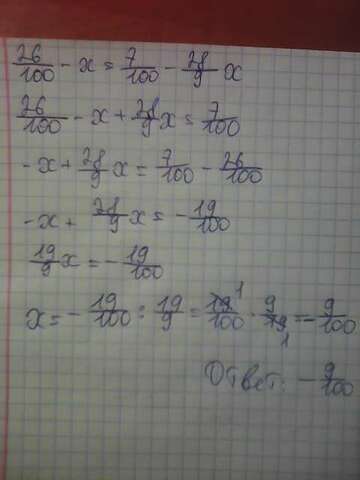 26/100 - x = 7/100 - 28/9 x
26/100 - x + 28/9 x = 7/100
- x + 28/9 x = 7/100 - 26/100
- x + 28/9 x = - 19/100
19/9 x = - 19/100
x = - 19/100 : 19/9 = 19 1/100 · 9/19 1 = - 9/100
Ответ: - 9/100